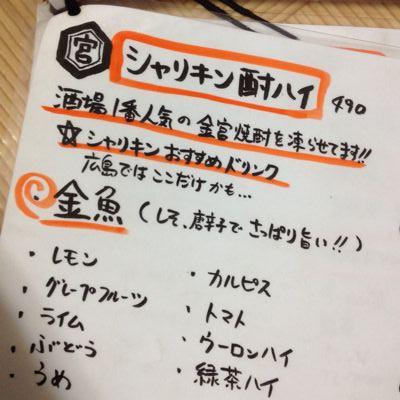 宮
シャリキン酎ハイ 490
酒場1番人気の金宮焼酎を凍らせてます!!
☆シャリキンおすすめドリンク
広島ではここだけかも…
・金魚(しそ、唐辛子でさっぱり旨い!!)
・レモン
・グレープフルーツ
・ライム
・ぶどう
・うめ
・カルピス
・トマト
・ウーロンハイ
・緑茶ハイ